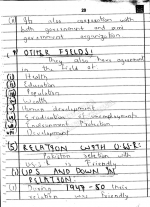 20
Its also cooperation with
both government and non
government organization
OTHER FIELDS:
They also have agreement
in the field of
Health
Education
Population
Wealth
Human development
Eradication of unemployment
Environment Protection
Development
(5) RELATION WITH U.S.:
Pakistan relation with
U.S. is friendly
UPS AND DOWN IN
RELATION:
During 1947-50 this
relation was friendly